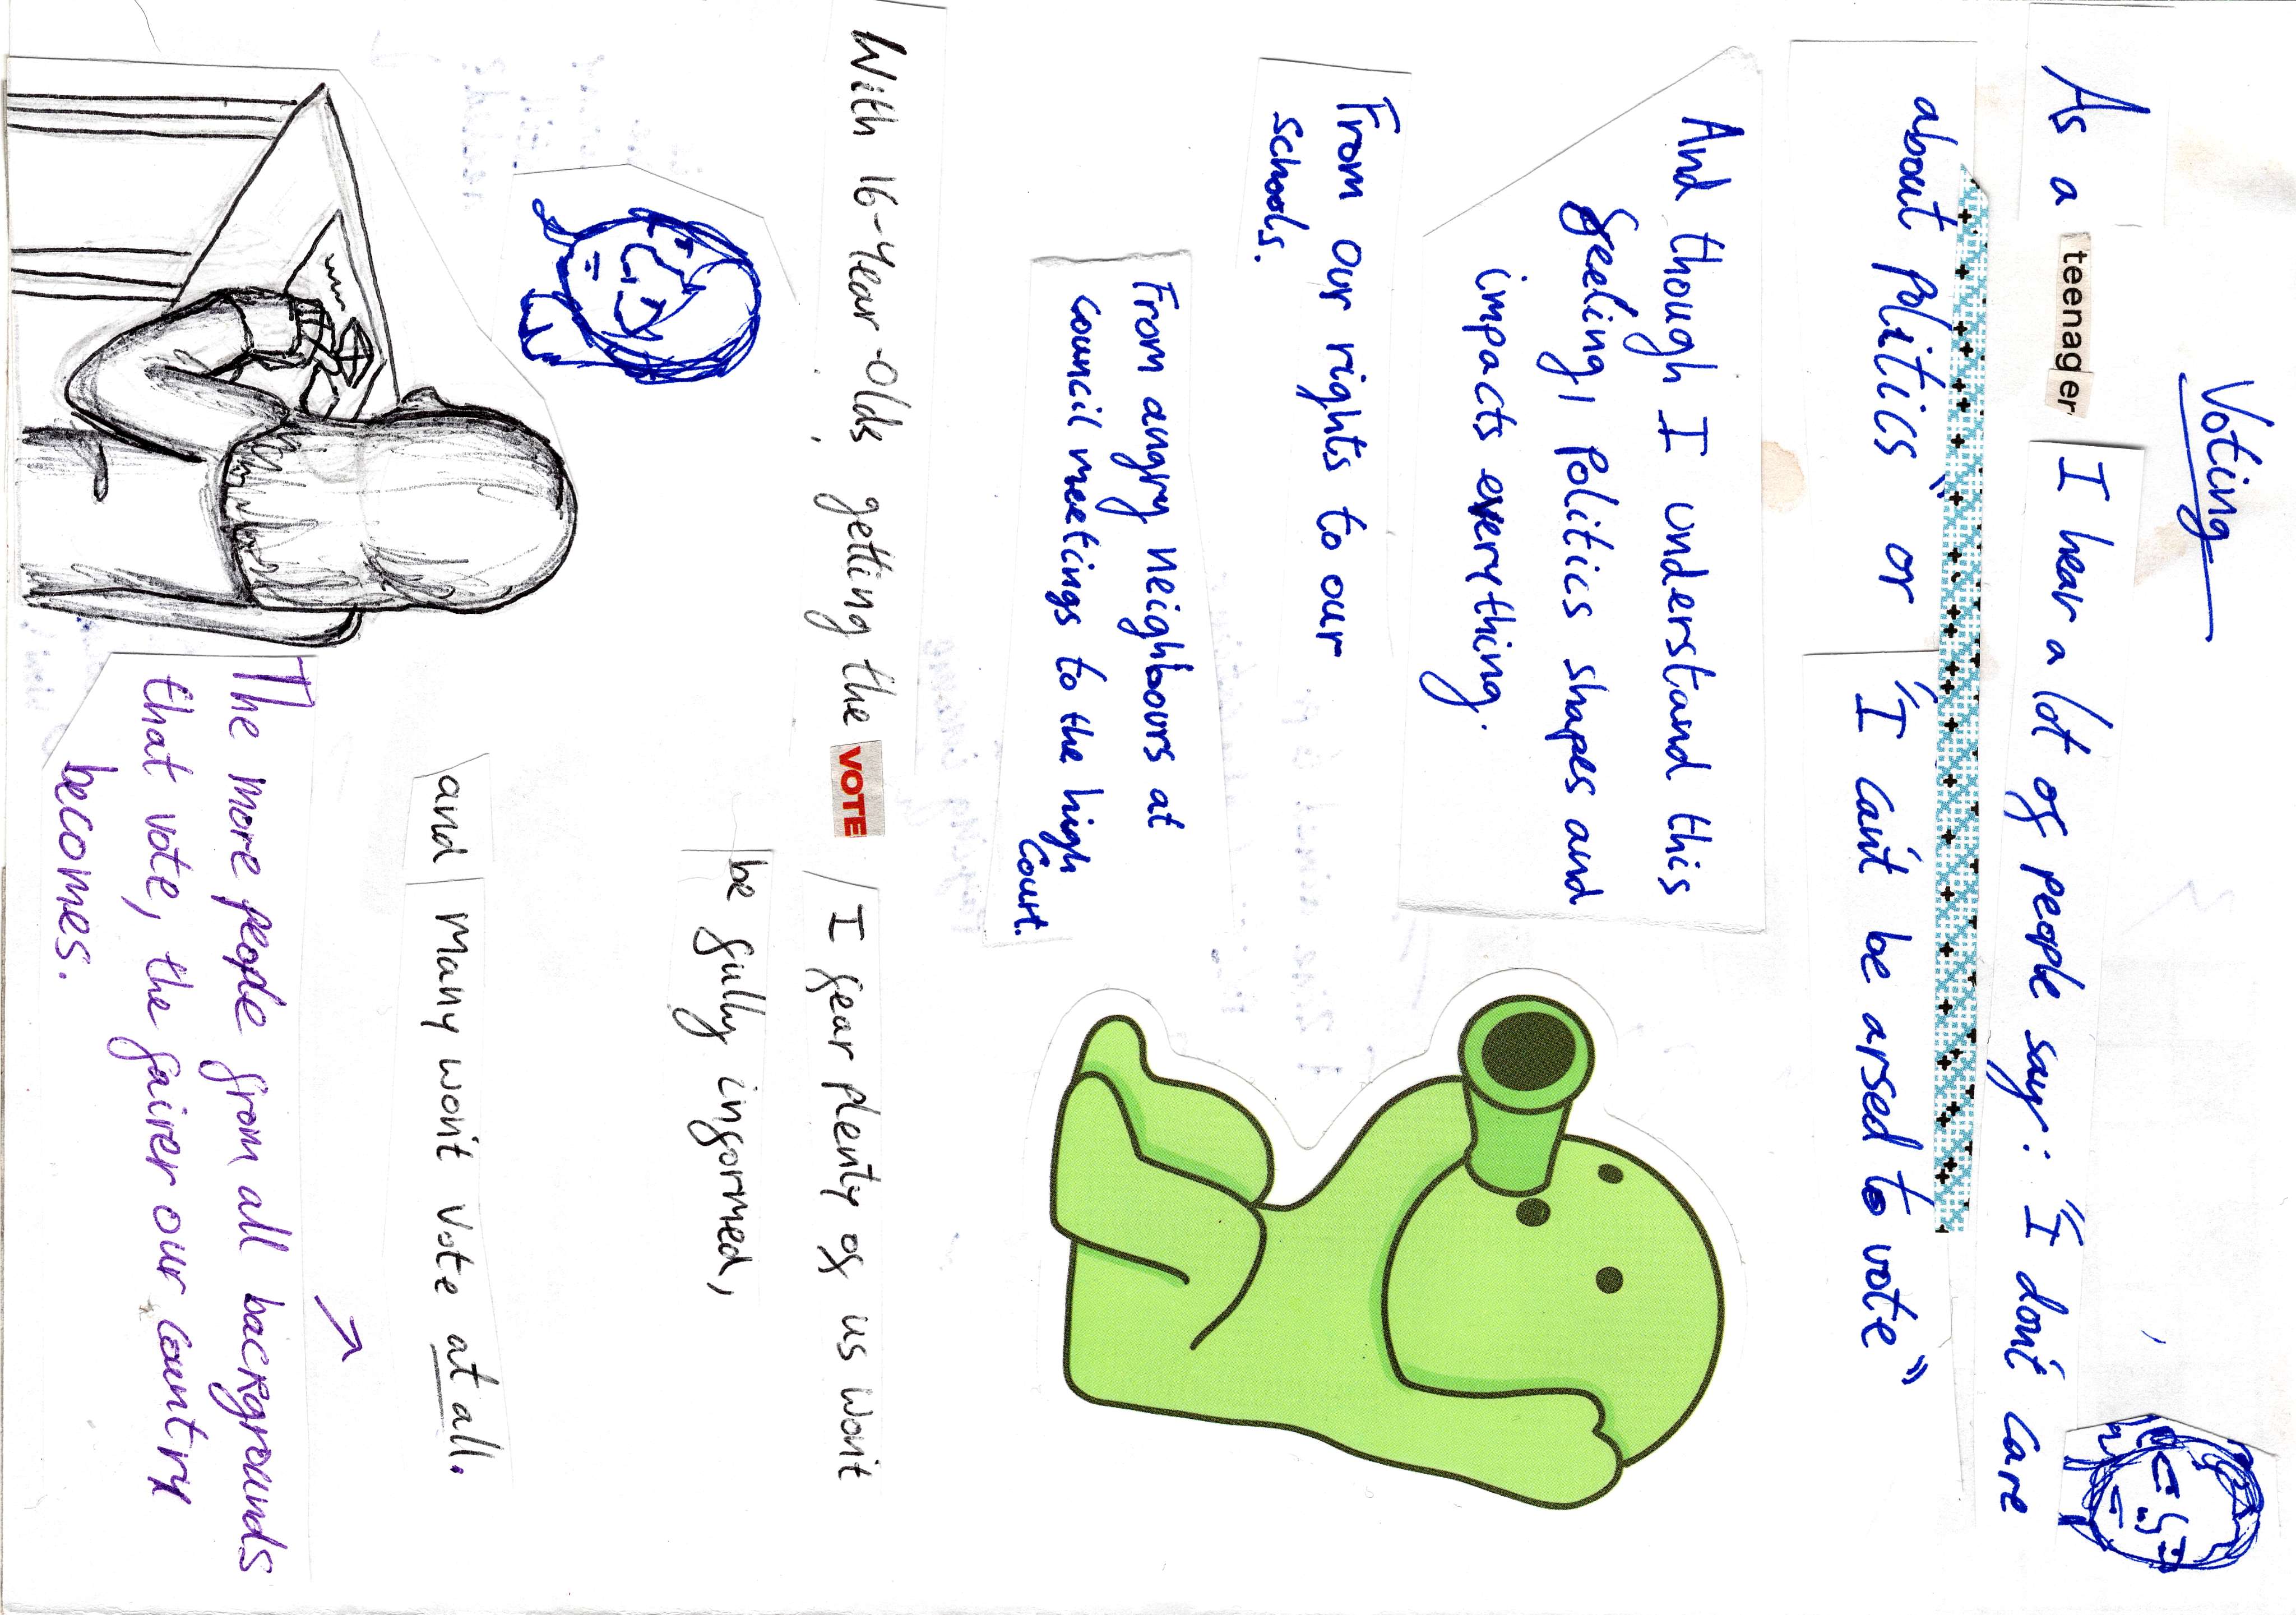 Voting
As a teenager I hear a lot of people say: "I don't care
about politics" or "I can't be arsed to vote"
And though I understand this
feeling, politics shapes and
impacts everything.
From our rights to our
schools.
From angry neighbours at
council meetings to the high
Court.
With 16-Year-Olds getting the VOTE I fear plenty of us won't
be fully informed,
and Many won't vote at all.
The more people from all backgrounds
that vote, the fairer our country
becomes.